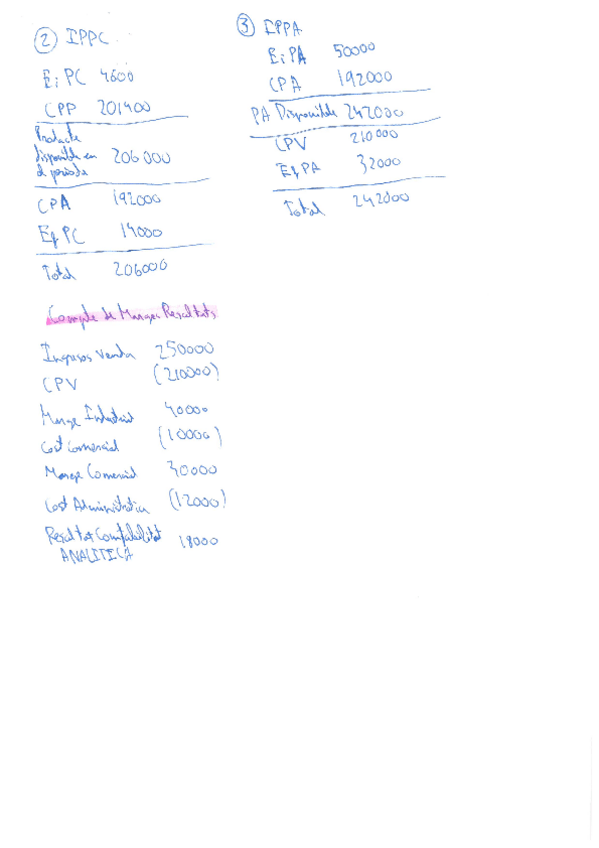 ② IPPC
Ei PC 4600
CPP 201400
Producte
disponible en
el període 206000
CPA 192000
Ef PC 14000
Total 206000
Compte de Marges Resultats
Ingresos Venda 250000
CPV (210000)
Marge Industrial 40000
Cost Comercial (10000)
Marge Comercial 30000
Cost Administratiu (12000)
Resultat Comptabilitat 18000
ANALITICA
③ IPPA
Ei PA 50000
CPA 192000
PA Disponible 242000
CPV 210000
Ef PA 32000
Total 242000